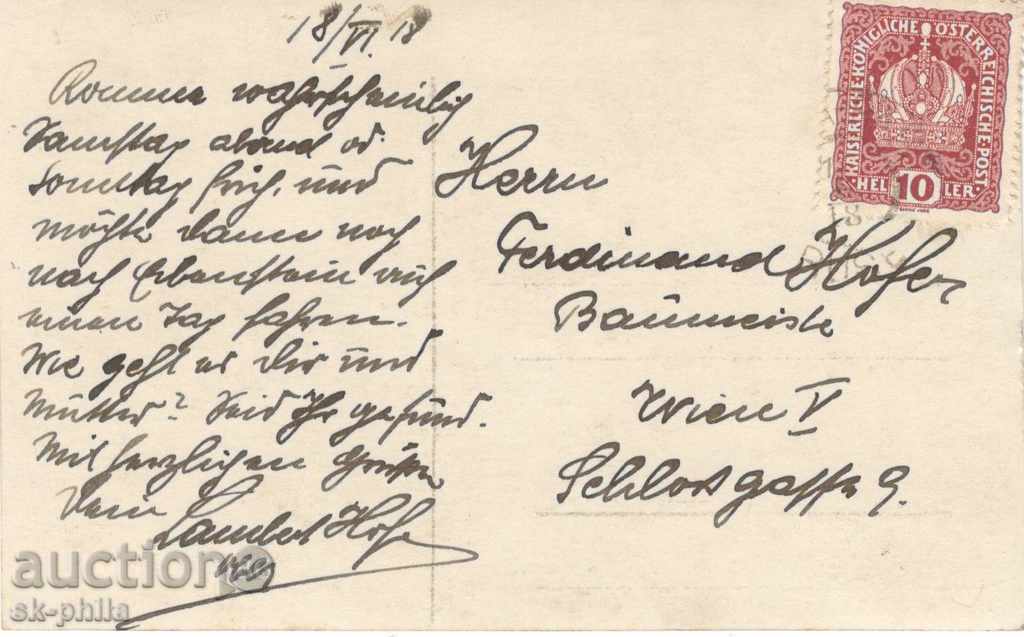 18/VI. 18
Komme wahrscheinlich
Samstag abend od.
Sonntag früh, und
möchte dann noch
nach Erbenstein auf
einen Tag fahren.
Wie geht es Dir und
Mutter? Seid Ihr gesund.
Mit herzlichen Grüßen
Dein
Lambert Hofer
Herrn
Ferdinand Hofer
Baumeister
Wien V
Schlossgasse 9.
KAISERLICHE·KÖNIGLICHE ÖSTERREICHISCHE·POST
HELLER 10
auction
sk-phila